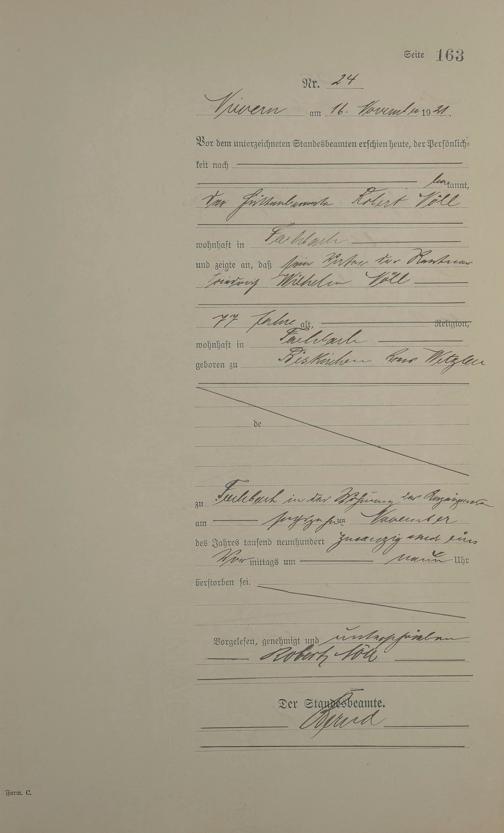 Seite 163
Nr. 24
Nievern am 16. November 1921.
Vor dem unterzeichneten Standesbeamten erschien heute, der Persönlich-
keit nach
kannt,
der Hüttenbeamte Robert Nöll
wohnhaft in Fachbach
und zeigte an, daß sein Vater der Rentner
Wilhelm Nöll
77 Jahre alt, Religion,
wohnhaft in Fachbach
geboren zu Biskirchen Kreis Wetzlar
de
zu Fachbach in der Wohnung des
am sechszehnten November
des Jahres tausend neunhundert zwanzig und eins
Vor mittags um neun Uhr
verstorben sei.
Vorgelesen, genehmigt und unterschrieben
Robert Nöll
Der Standesbeamte.
Form. C.